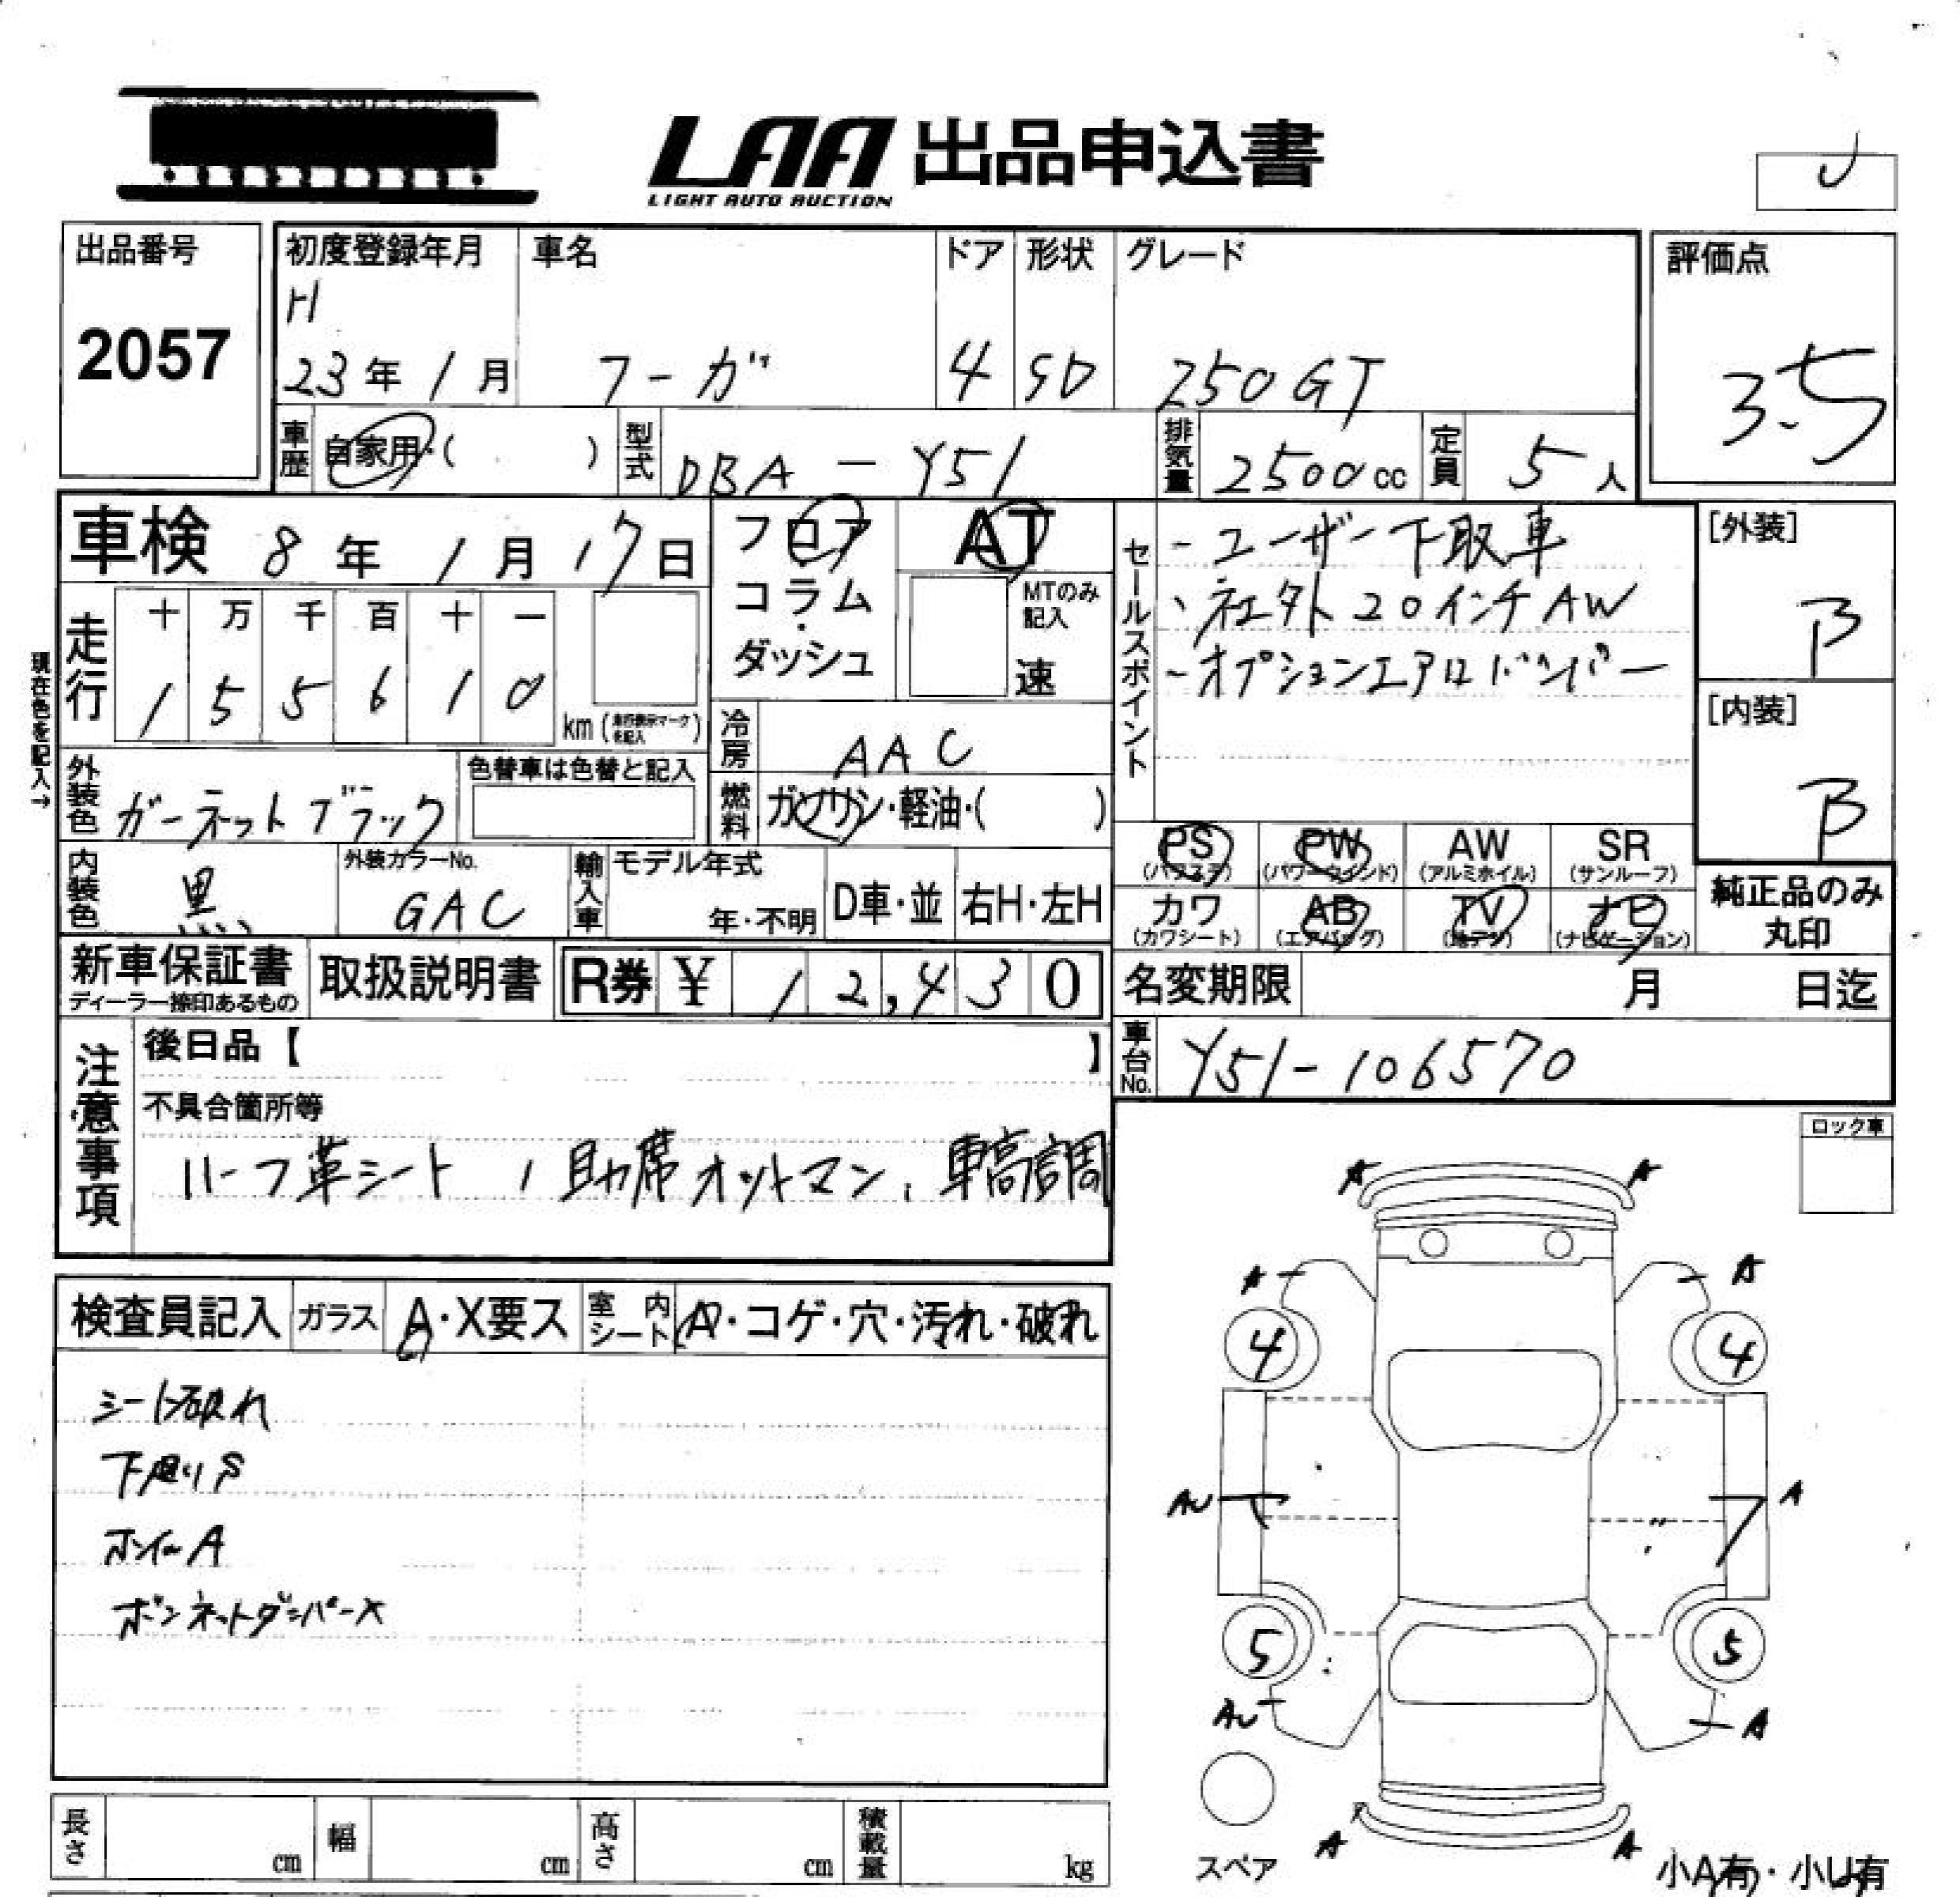 LAA 出品申込書
LIGHT AUTO AUCTION
出品番号
2057
初度登録年月
H
23年 1月
車名
フーガ
ドア
4
形状
SD
グレード
250GT
評価点
3.5
車歴
自家用・( )
型式
DBA - Y51
排気量
2500cc
定員
5人
車検 8年 1月 17日
フロア
コラム
・
ダッシュ
AT
MTのみ
記入
速
セールスポイント
・ユーザー下取車
・社外20インチAW
・オプションエアロバンパー
[外装]
B
[内装]
B
現在色を記入→
走行
十 万 千 百 十 一
1 5 5 6 1 0
km
冷房
AAC
燃料
ガソリン・軽油・( )
外装色
ガーネットブラック
色替車は色替と記入
内装色
黒
外装カラーNo.
GAC
輸入車
モデル年式
年・不明
D車・並
右H・左H
PS
(パワステ)
PW
(パワーウインド)
AW
(アルミホイル)
SR
(サンルーフ)
カワ
(カワシート)
AB
(エアバッグ)
TV
(地デジ)
ナビ
(ナビゲーション)
純正品のみ
丸印
新車保証書
ディーラー捺印あるもの
取扱説明書
R券 ¥ 12,430
名変期限 月 日迄
車台No.
Y51-106570
注意事項
後日品【 】
不具合箇所等
ハーフ革シート、助席オットマン、車高調
ロック車
検査員記入
ガラス
A・X要ス
室内シート
A・コゲ・穴・汚れ・破れ
シート破れ
下廻りS
ホイールA
ボンネットダンパーX
A A
A A
4 4
AU A
5 5
AU A
A A
スペア
小A有・小U有
長さ cm
幅 cm
高さ cm
積載量 kg